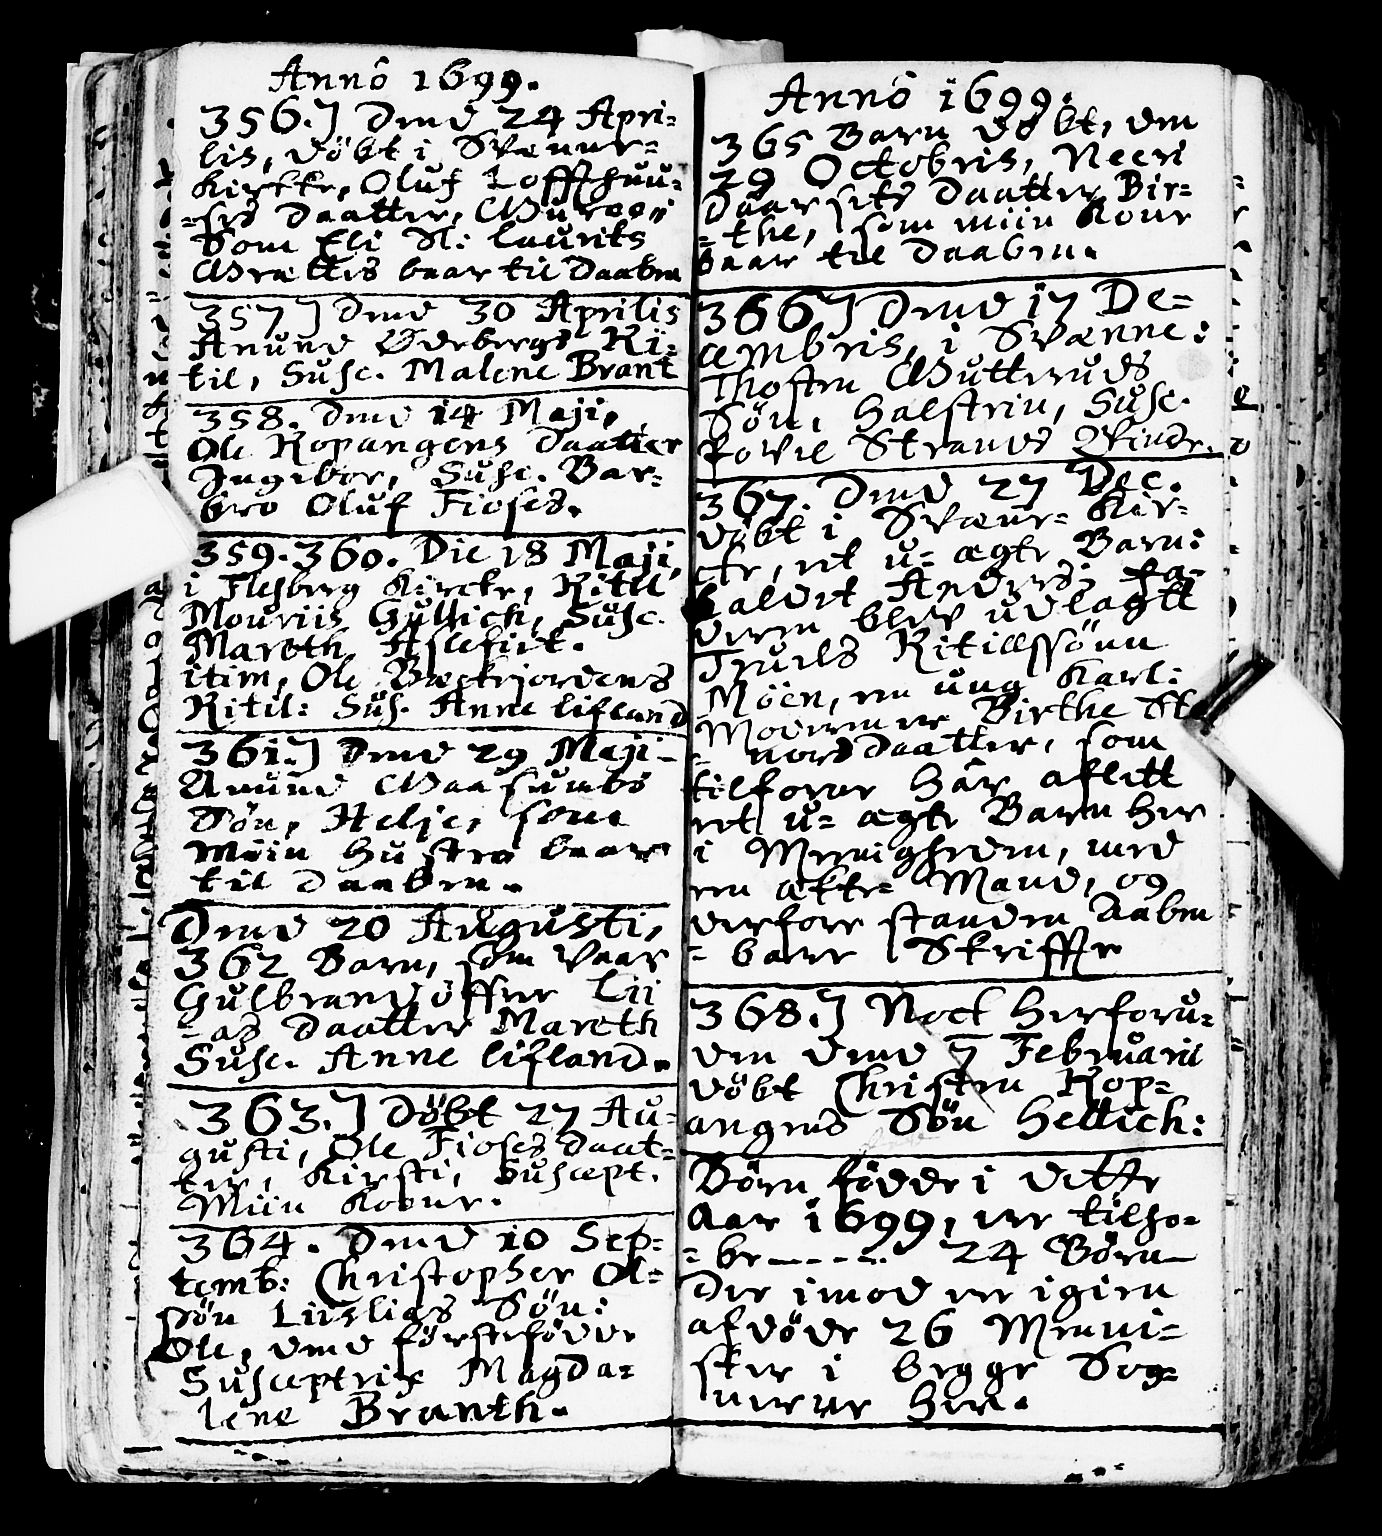 Annô 1699.
356.] Dend 24 Apri-
lis, döbt i Svenne-
Kirkke, Oluf Loffthuu-
-ses Daatter,
Som Eli Sl: Laurits
baar til Daaben
357] Dend 30 Aprilis
Anund Ødebergs Ki-
til, Susc. Malene Brant
358. Dend 14 Maji,
Ole Kopangens Daatter
Ingebor, Susc. Bar-
bro Oluf Fioses.
359. 360. Die 18 Maji,
i Flesberg Kircke, Kitil
Mouriis Gullich, Susc.
Mareth Aslefiet.
item, Ole Beckejordens
Kitil: Sus. Anne Lifland
361.] Dend 29 Maji-
Anund
Sön, Helje, som
Miin Hustro baar
til Daaben.
Dend 20 Augusti,
362 Barn, som vaar
Gulbrand öffre Lii
-as Daatter Mareth
Susc. Anne Lifland.
363.] Döbt 27 Au-
gusti, Ole Fioses Daat-
ter, Kirsti, Suscept.
Miin Kone.
364. Dend 10 Sep-
temb: Christopher Ol-
Sön Liislies Sön:
Ole, dend förstefödde
Susceptrix Magda-
lene Branth.
Annô 1699.
365 Barn döbt, den
29 Octobris, Neeri
Daasets Daatter Bir-
-the, som miin Kone
baar til Daaben.
366] Dend 17 De-
cembris, i Svenne:
Thosten Gutteruds
Sön, Halstein, Susc.
Povel Strands Qvinde.
367. Dend 27 Dec.
döbt i Svenne- Kir-
cke, et u- ægte Barn:
kaldet Anders: Fa-
deren blef udlagtt
Truels Kitillssönn
Möen, en ung Karl:
Moderen er Birthe Ste
- nersdaatter, som
tilforne har aflett
et u- ægte Barn her
i Menigheden, med
en ækte- Mand, og
derfore standen Aaben
- bare Skriffte
368.] Nock herforu-
den dend 7 Februarii
döbt Christen Kop-
angens Sön Hellich:
Börn födde i dette
Aar 1699, er tilho-
- be----- 24 Börn
Der imod er igien
afdöde 26 Menni-
sker i begge Sog-
nerne her.